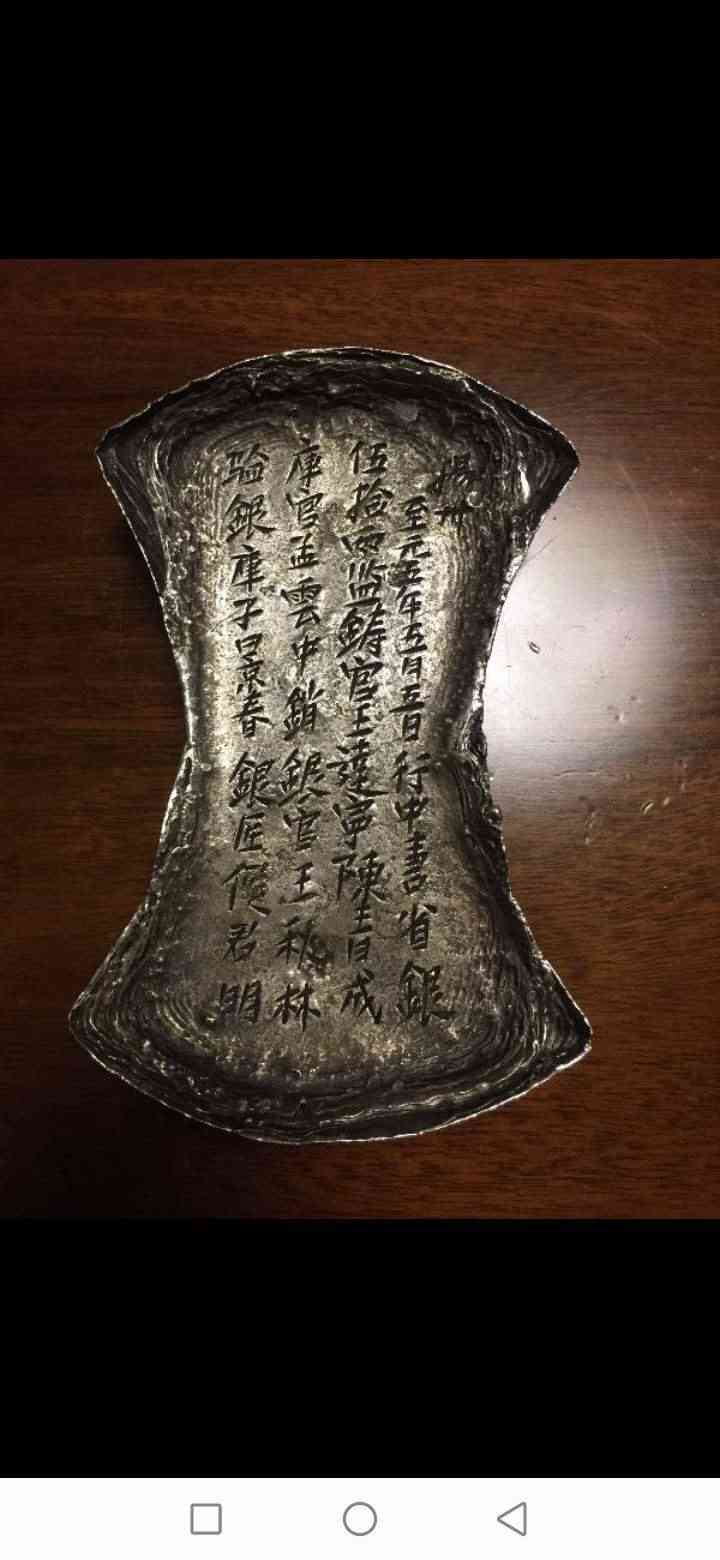 揚州
至元五年五月五日行中書省銀
伍拾两监鑄官王達宁陳青成
庫官孟雲中銷銀官王秋林
驗銀庫子景春銀匠侯君明